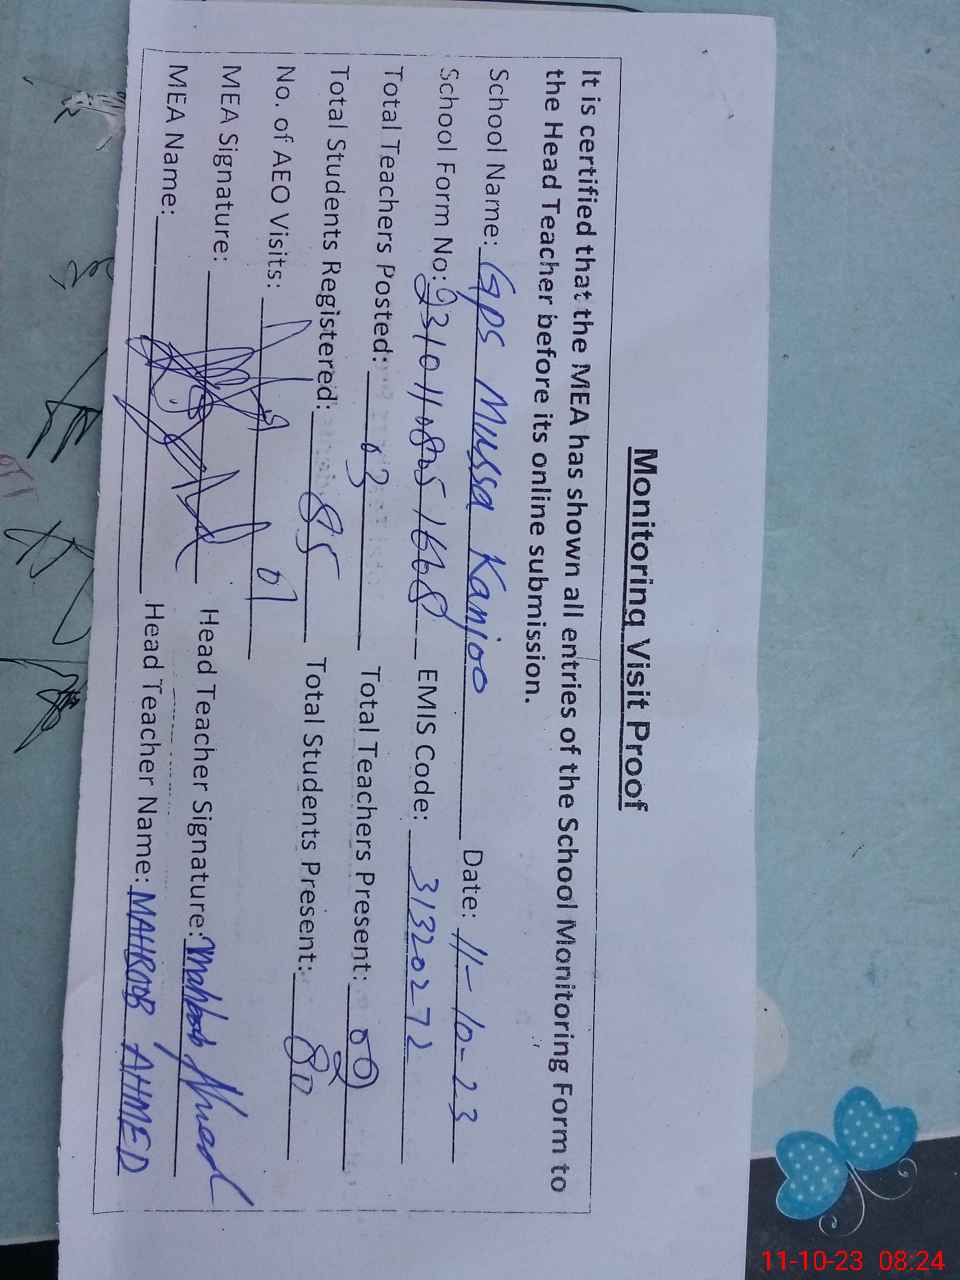 Monitoring Visit Proof
It is certified that the MEA has shown all entries of the School Monitoring Form to
the Head Teacher before its online submission.
School Name: GPS Mussa Kanjoo Date: 11-10-23
School Form No: EMIS Code: 31320272
Total Teachers Posted: 03 Total Teachers Present:
Total Students Registered: 85 Total Students Present: 80
No. of AEO Visits: 01
MEA Signature: Head Teacher Signature: Mahboob Ahmed
MEA Name: Head Teacher Name: MAHBOOB AHMED
11-10-23 08:24